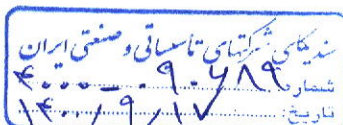 سندیکای شرکتهای تاسیساتی و صنعتی ایران
شماره: ۴۰۰۰-۰۹۰۶۸۹
تاریخ: ۱۴۰۰/۹/۱۷